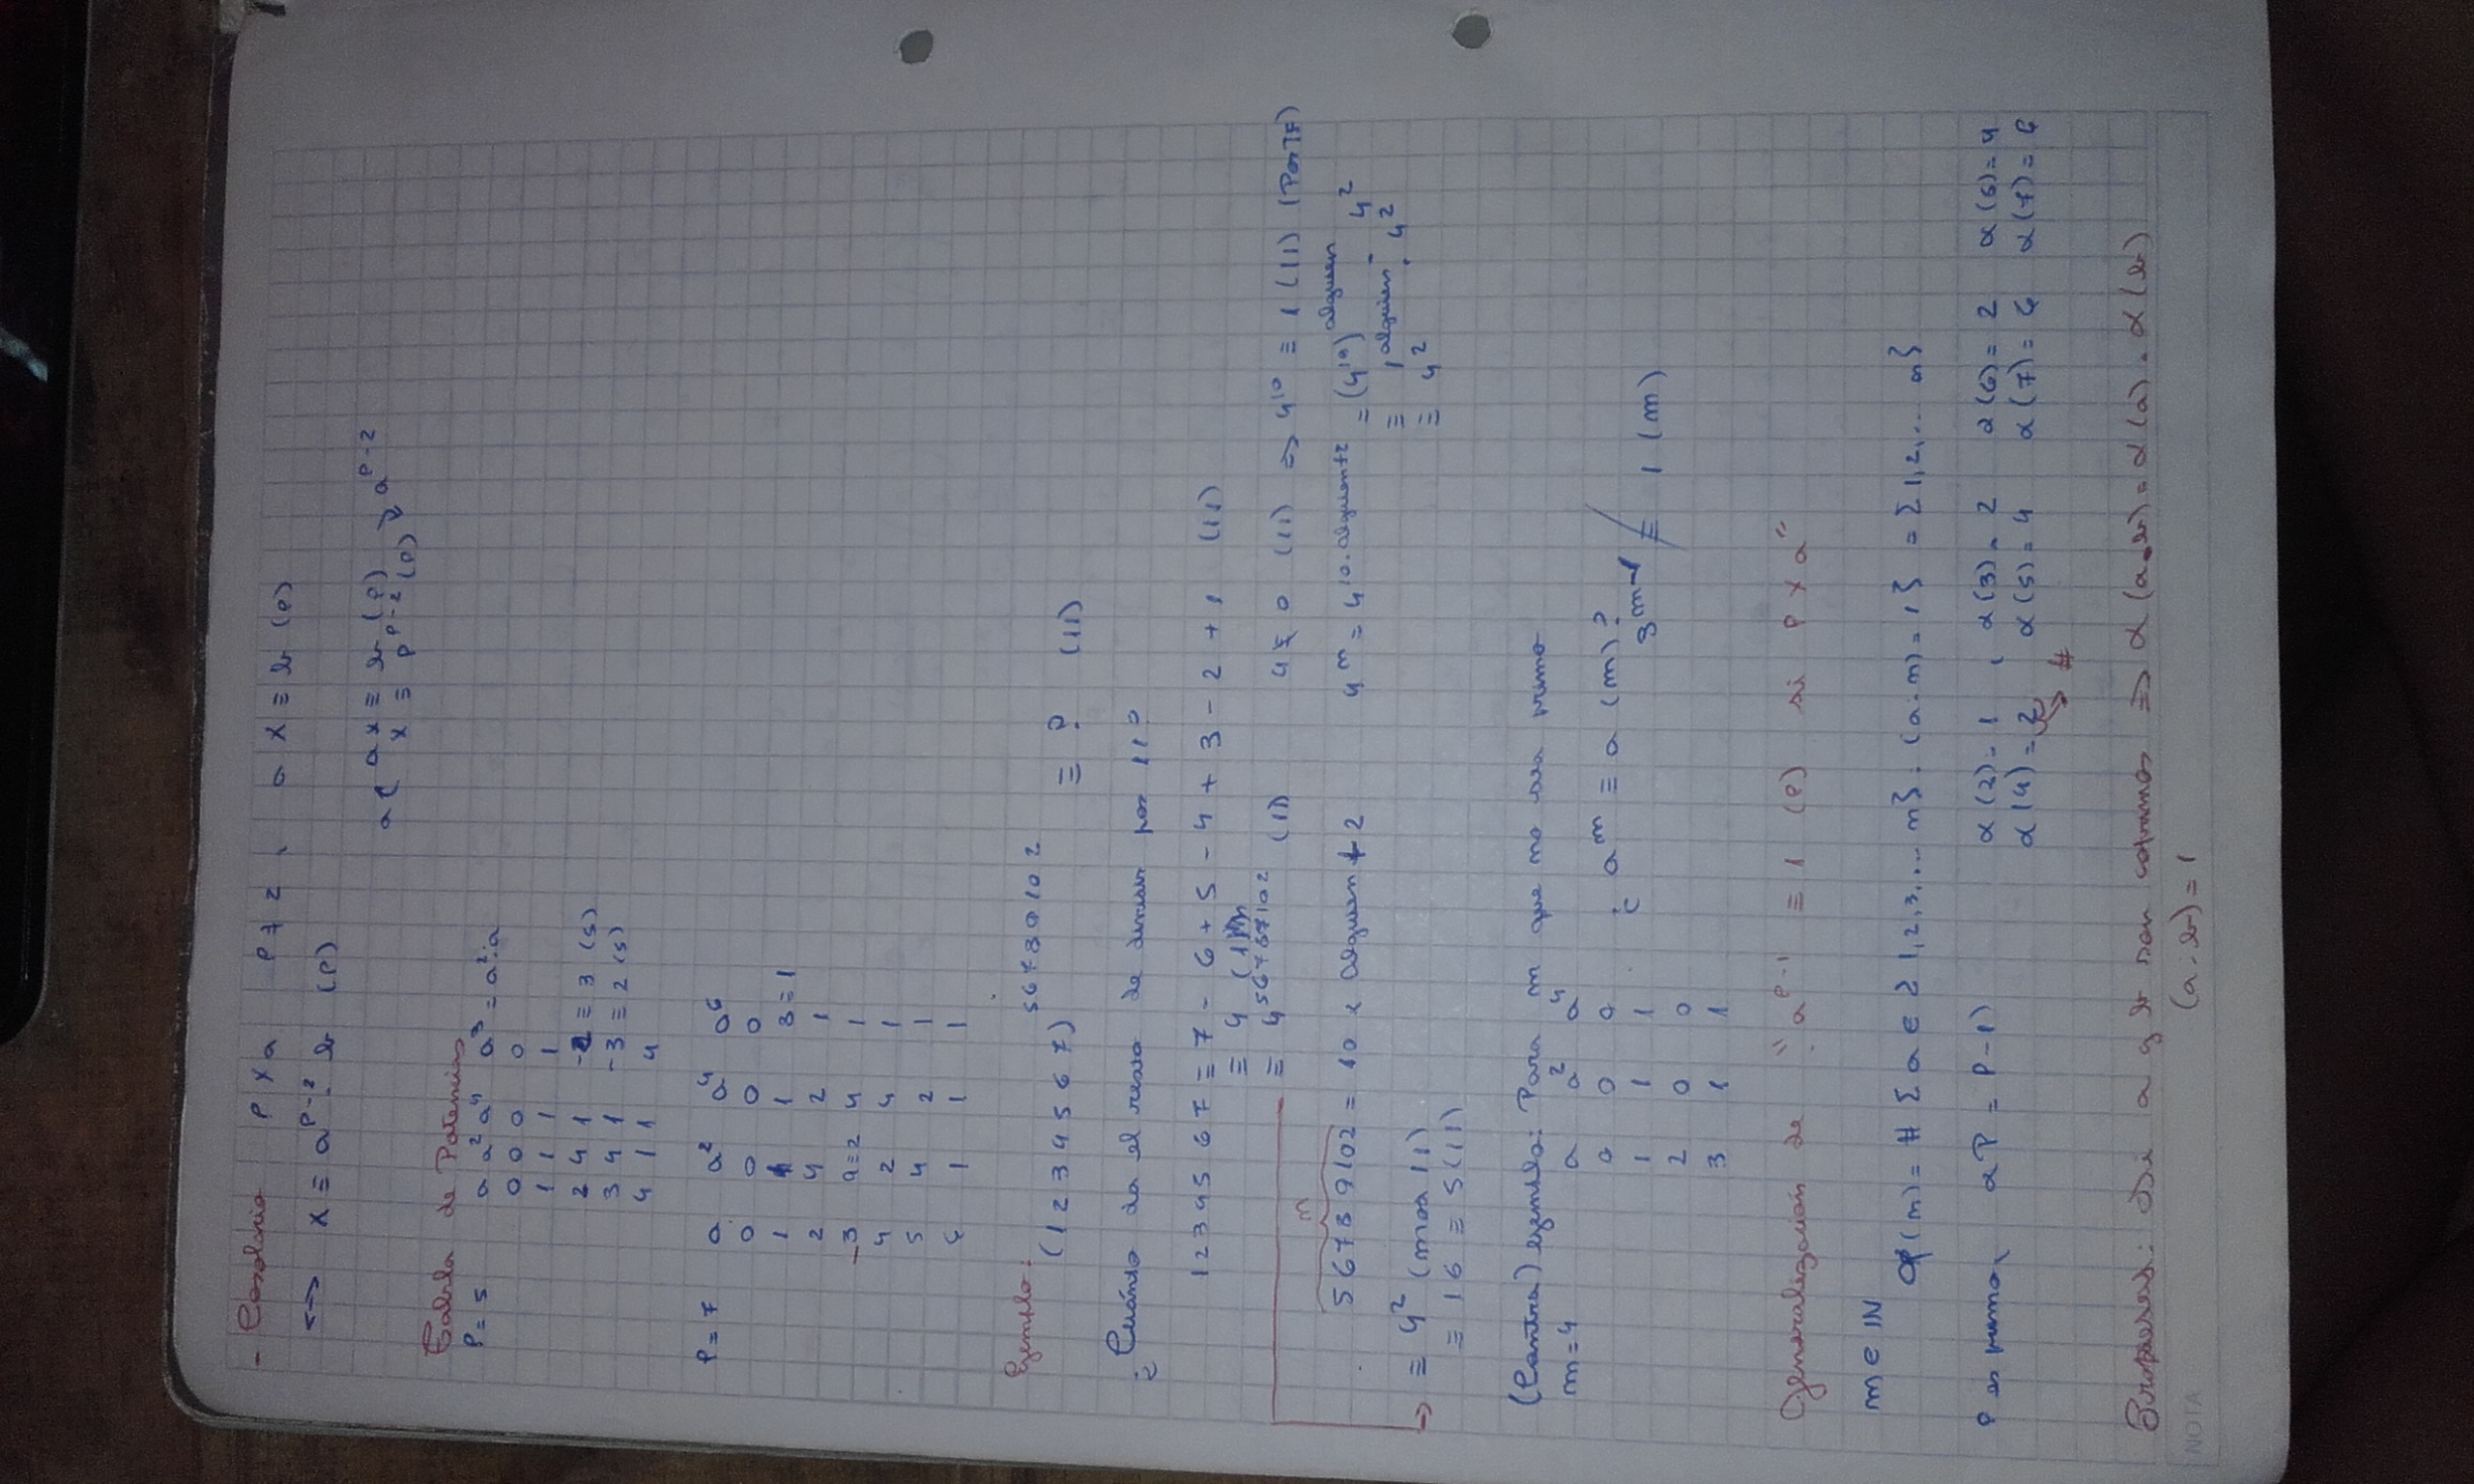 - Corolario p ∤ a p ≠ 2, a x ≡ b (p)
<-> x ≡ a^(p-2) · b (p)
a ( ax ≡ b (p) ↘ a^(p-2)
x ≡ p^(p-2) (p)
Tabla de Potencias
P = 5 a a² a⁴ a³ = a²·a
0 0 0 0
1 1 1 1
2 4 1 -2 ≡ 3 (5)
3 4 1 -3 ≡ 2 (5)
4 1 1 4
P = 7 a a² a⁴ a⁶
0 0 0 0
1 1 1 3 = 1
2 4 2 1
3 9=2 4 1
4 2 4 1
5 4 2 1
6 1 1 1
Ejemplo:
(1234567)^56789102 ≡ ? (11)
¿Cuánto da el resto de dividir por 11?
1234567 ≡ 7 - 6 + 5 - 4 + 3 - 2 + 1 (11)
≡ 4 (11)
≡ 4^56789102 (11) 4 ≢ 0 (11) => 4^10 ≡ 1 (11) (Por TF)
n
56789102 = 10 · alguien + 2 4^n = 4^(10·alguien+2) = (4^10)^alguien · 4²
≡ 1^alguien · 4²
≡ 4² (mod 11) ≡ 4²
≡ 16 ≡ 5(11)
(Contra) ejemplo: Para m que no sea primo
m = 4 a a² a⁴
0 0 0 ¿ a^m ≡ a (m)?
1 1 1 3^(m-1) ≢ 1 (m)
2 0 0
3 1 1
Generalización de "a^(p-1) ≡ 1 (p) si p ∤ a"
m ∈ IN
φ(n) = # { a ∈ { 1,2,3,... n} : (a:n) = 1 } = {1,2,... n}
P es primo, α P = P-1) α(2) = 1 , α(3) = 2 α(6) = 2 α(5) = 4
α(4) = 2 α(5) = 4 α(7) = 6 α(7) = 6
-> #
Si a y b son coprimos => α(a.b) = α(a) . α(b)
(a : b) = 1
NOTA